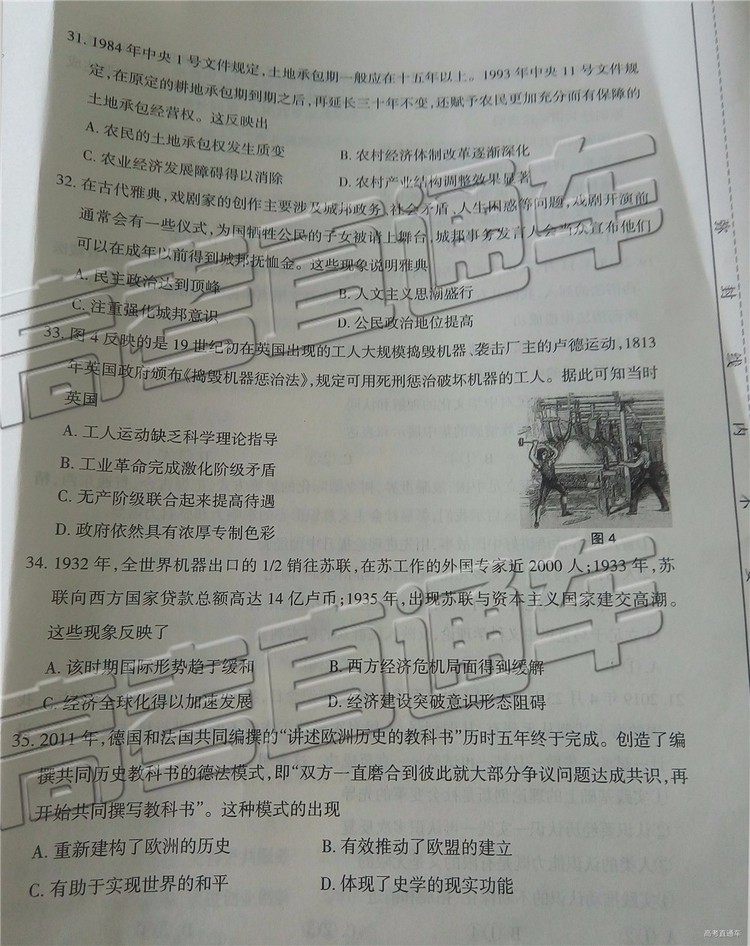 31. 1984 年中央 1 号文件规定，土地承包期一般应在十五年以上。1993 年中央 11 号文件规
定，在原定的耕地承包期到期之后，再延长三十年不变，还赋予农民更加充分而有保障的
土地承包经营权。这反映出
A. 农民的土地承包权发生质变 B. 农村经济体制改革逐渐深化
C. 农业经济发展障碍得以消除 D. 农村产业结构调整效果显著
32. 在古代雅典，戏剧家的创作主要涉及城邦政务、社会矛盾、人生困惑等问题，戏剧开演前
通常会有一些仪式，为国牺牲公民的子女被请上舞台，城邦事务发言人会当众宣布他们
可以在成年以前得到城邦抚恤金。这些现象说明雅典
A. 民主政治达到顶峰 B. 人文主义思潮盛行
C. 注重强化城邦意识 D. 公民政治地位提高
33. 图 4 反映的是 19 世纪初在英国出现的工人大规模捣毁机器、袭击厂主的卢德运动，1813
年英国政府颁布《捣毁机器惩治法》，规定可用死刑惩治破坏机器的工人。据此可知当时
英国
A. 工人运动缺乏科学理论指导
B. 工业革命完成激化阶级矛盾
C. 无产阶级联合起来提高待遇
D. 政府依然具有浓厚专制色彩
图 4
34. 1932 年，全世界机器出口的 1/2 销往苏联，在苏工作的外国专家近 2000 人；1933 年，苏
联向西方国家贷款总额高达 14 亿卢币；1935 年，出现苏联与资本主义国家建交高潮。
这些现象反映了
A. 该时期国际形势趋于缓和 B. 西方经济危机局面得到缓解
C. 经济全球化得以加速发展 D. 经济建设突破意识形态阻碍
35. 2011 年，德国和法国共同编撰的“讲述欧洲历史的教科书”历时五年终于完成。创造了编
撰共同历史教科书的德法模式，即“双方一直磨合到彼此就大部分争议问题达成共识，再
开始共同撰写教科书”。这种模式的出现
A. 重新建构了欧洲的历史 B. 有效推动了欧盟的建立
C. 有助于实现世界的和平 D. 体现了史学的现实功能
弥 封 线 内 不
高考直通车
高考直通车
高考直通车